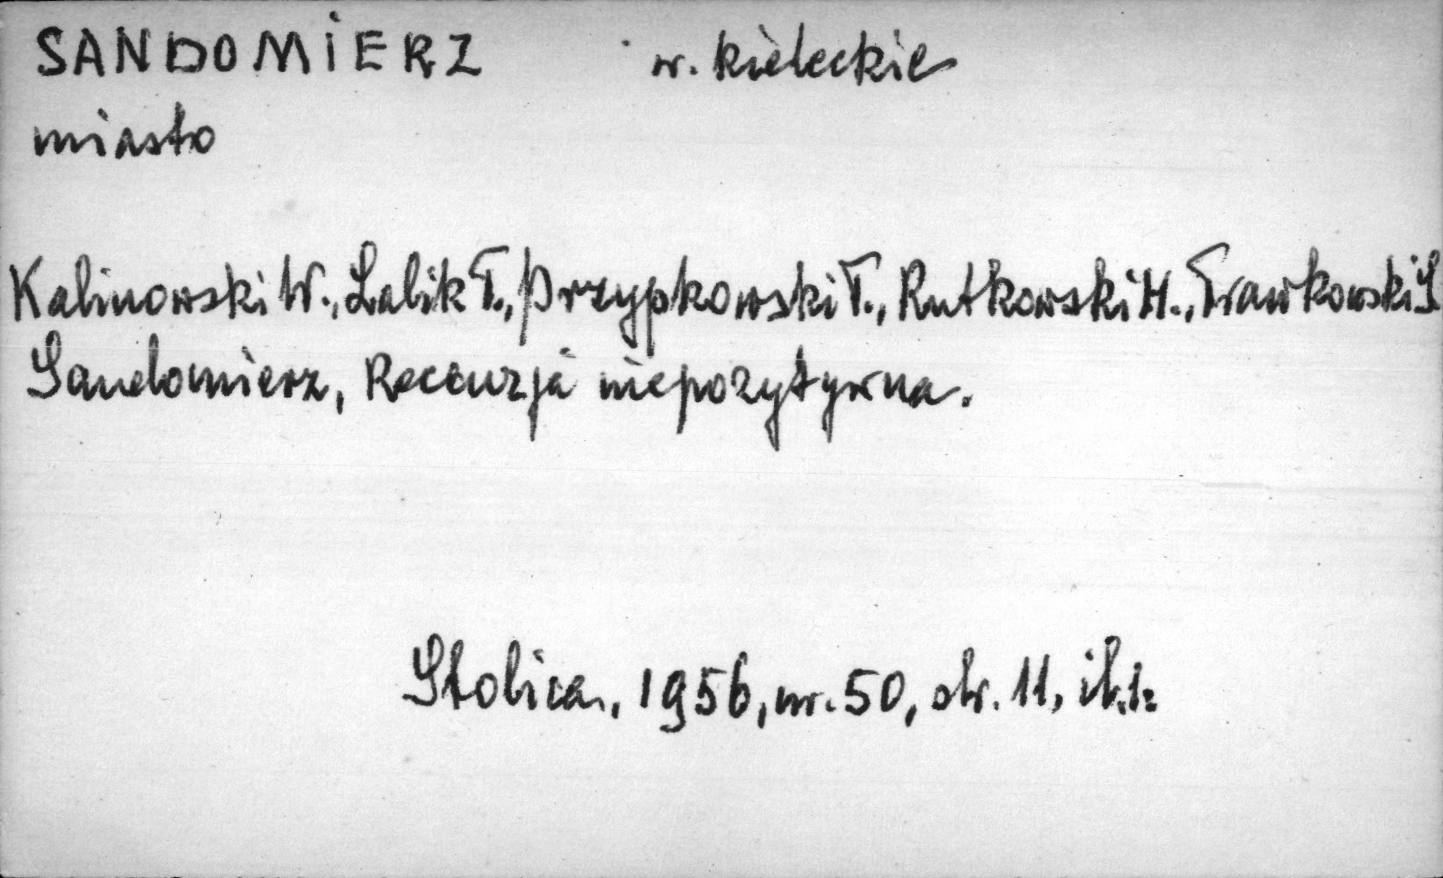 SANDOMIERZ w. kieleckie
miasto
Kalinowski W., Lalik T., Przypkowski T., Rutkowski H., Trawkowski S
Sandomierz, Recenzja niepozytywna.
Stolica, 1956, nr. 50, str. 11, il.1.